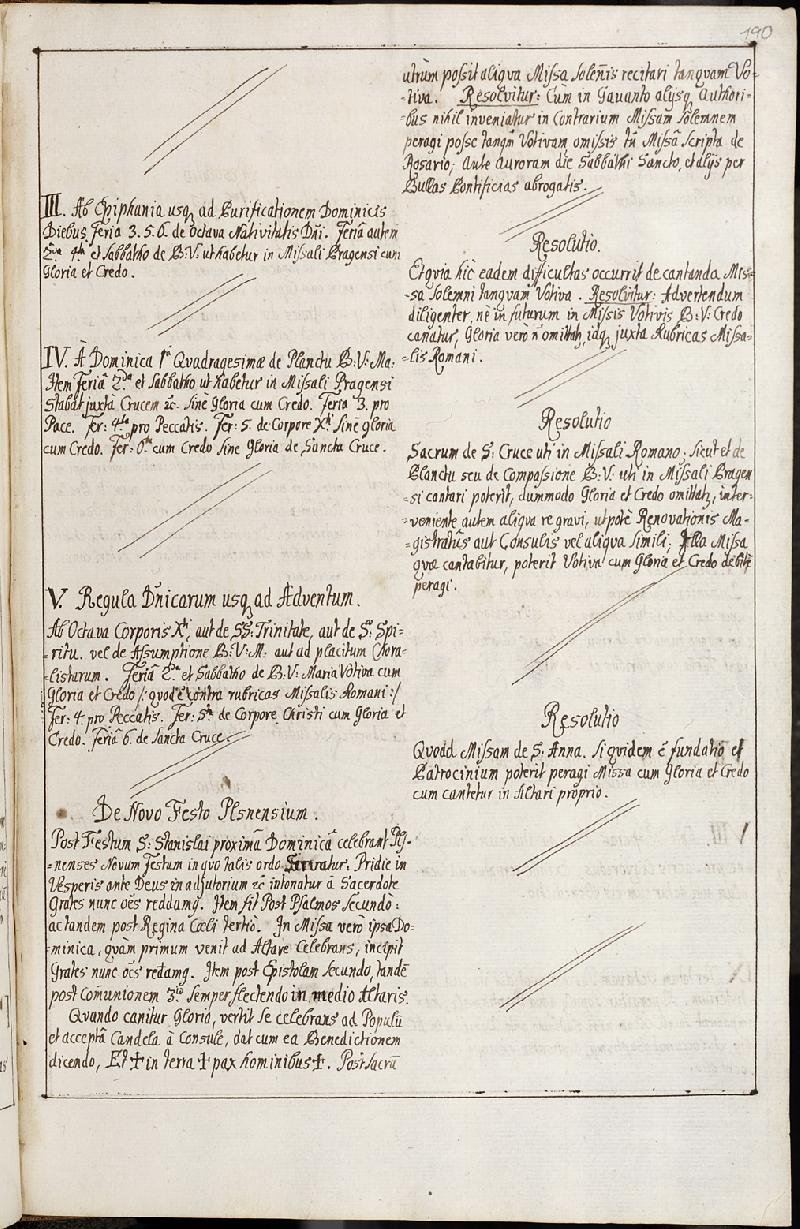 190
III. Ab Epiphania usq. ad Purificationem Dominicis
Diebus, Feria 3. 5. 6. de octava Nativitatis Dñi. Feriâ autem
2da 4ta et Sabbatho de B: V: ut habetur in Missali Pragensi cum
Gloria et Credo.
IV. À Dominica 1â Qvadragesimæ de Planctu B: V: Ma:
Item Feriâ 2da et Sabbatho ut habetur in Missali Pragensi
Stabat juxta Crucem &c. Sinè Gloria cum Credo. Feria 3. pro
Pace. Fer: 4ta pro Peccatis. Fer: 5. de Corpore Xti Sine gloria
cum Credo. Fer: 6ta cum Credo sine Gloria de Sancta Cruce.
V. Regula Dñicarum usq. ad Adventum.
Ab Octava Corporis Xti, aut de SS: Trinitate, aut de So Spi:
ritu. vel de Assumptione B: V: M: aut ad placitum Chora-
listarum. Feriâ 2da et Sabbatho de B: V: Maria Votiva cum
Gloria et Credo /: qvod è contra rubricas Missalis Romani :/
Fer: 4 pro Peccatis. Fer: 5ta de Corpore Christi cum Gloria et
Credo. Feriâ 6. de Sancta Cruce.
De Novo Festo Plsnensium.
Post Festum S: Stanislai proximâ Dominicâ celebrant Pls-
-nenses Novum Festum in qvo talis ordo Servatur: Pridie in
Vesperis ante Deus in adjutorium &c intonatur â Sacerdote
Grates nunc oēs reddamq. Item fit Post Psalmos secundo:
ac tandem post Regina Cœli tertiò. In Missa verò ipsa Do-
minica, qvàm primum venit ad Altare Celebrans, incipit
Grates nunc oēs redamq. Item post Epistolam secundo, tandē
post Comunionem 3tio Semper flectendo in medio Altaris.
Qvando canitur Gloria, vertit se celebrans ad Populū
et acceptâ Candela â Consule, dat cum ea Benedictionem
dicendo, Et ✝ in terra ✝ pax hominibus ✝. Post Sacrū
utrùm possit aliqva Missa Soleñis recitari tanqvam Vo-
-tiva. Resolvitur: Cùm in Gavanto alysq. Authori-
-bus nihil inveniatur in Contrarium Missam Solemnem
peragi posse tanqm Votivam omissis tñ Missâ Scripta de
Rosario, Ante Auroram die Sabbathi Sancto, et alys per
Bullas Pontificias abrogatis.
Resolutio.
Et qvia hîc eadem difficultas occurrit de cantanda Mis-
-sa Solemni tanqvam Votiva. Resolvitur: Advertendum
diligenter, nè in futurum in Missis Votivis B: V: Credo
canatur, Gloria verò ñ omittatr, idq. juxta Rubricas Missa-
-lis Romani.
Resolutio
Sacrum de S: Cruce uti in Missali Romano; Sicut et de
Planctu seu de Compassione B: V: uti in Missali Pragen
-si cantari poterit, dummodo Gloria et Credo omittatr, inter-
-veniente autem aliqva re gravi, utpotè Renovationis Ma-
-gistratûs aut Consulis vel aliqva simili; Illa Missa
qvæ cantabitur, poterit Votiva cum Gloria et Credo debitè
peragi.
Resolutio
Qvodd Missam de S: Anna. Siqvidem ē fundatio et
Patrocinium poterit peragi Missa cum Gloria et Credo
cum cantetur in Altari proprio.